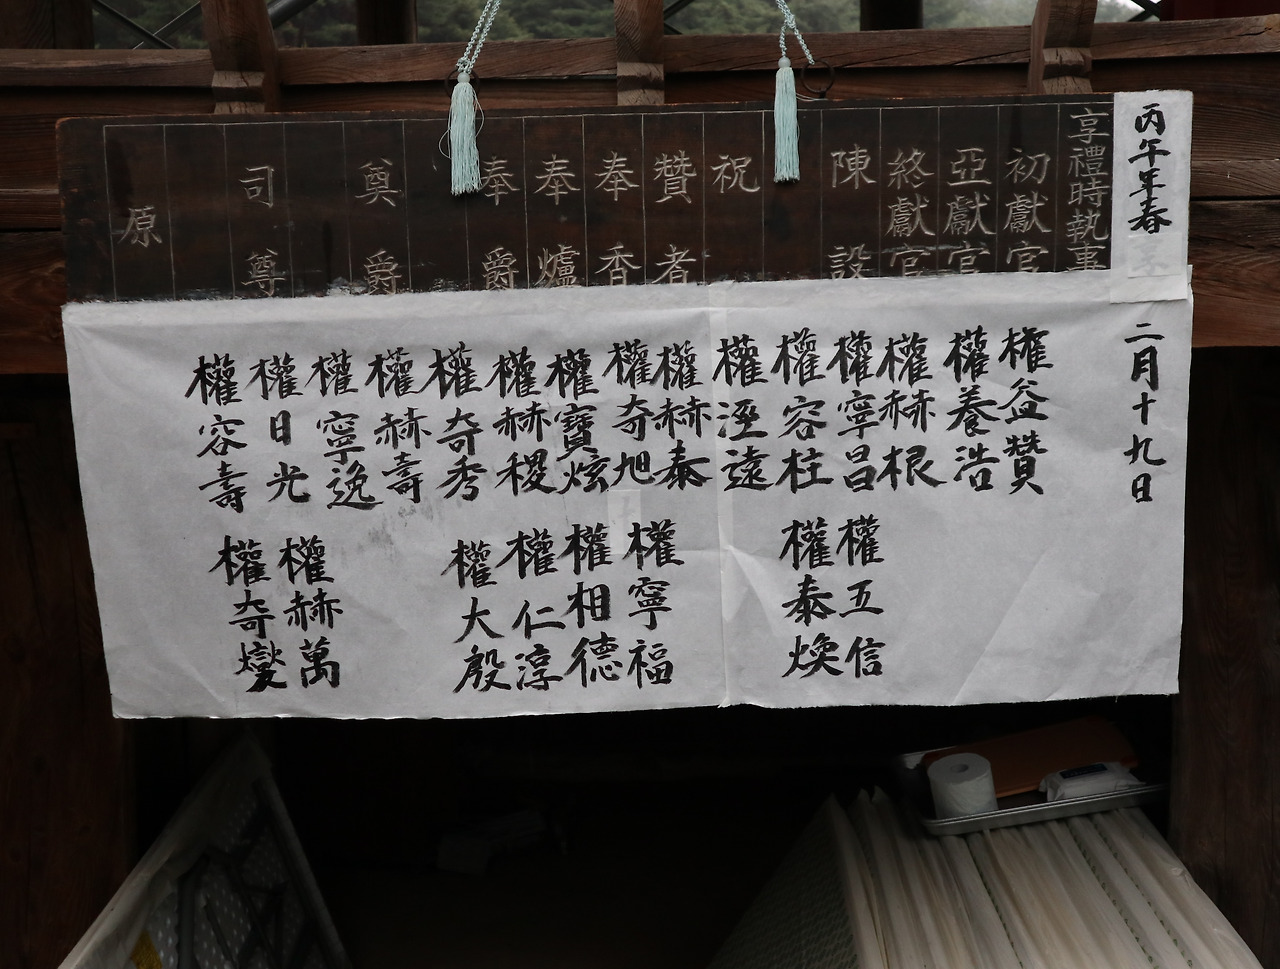 丙午年春
二月十九日
享禮時執事
初獻官
亞獻官
終獻官
陳設
祝
贊者
奉香
奉爐
奉爵
奠爵
司尊
原
權益贊
權養浩
權赫根
權寧昌
權五信
權容柱
權泰煥
權溼遠
權赫泰
權奇旭
權寧福
權寶炫
權相德
權赫稷
權仁淳
權奇秀
權大殷
權赫壽
權寧逸
權赫萬
權日光
權奇燮
權容壽